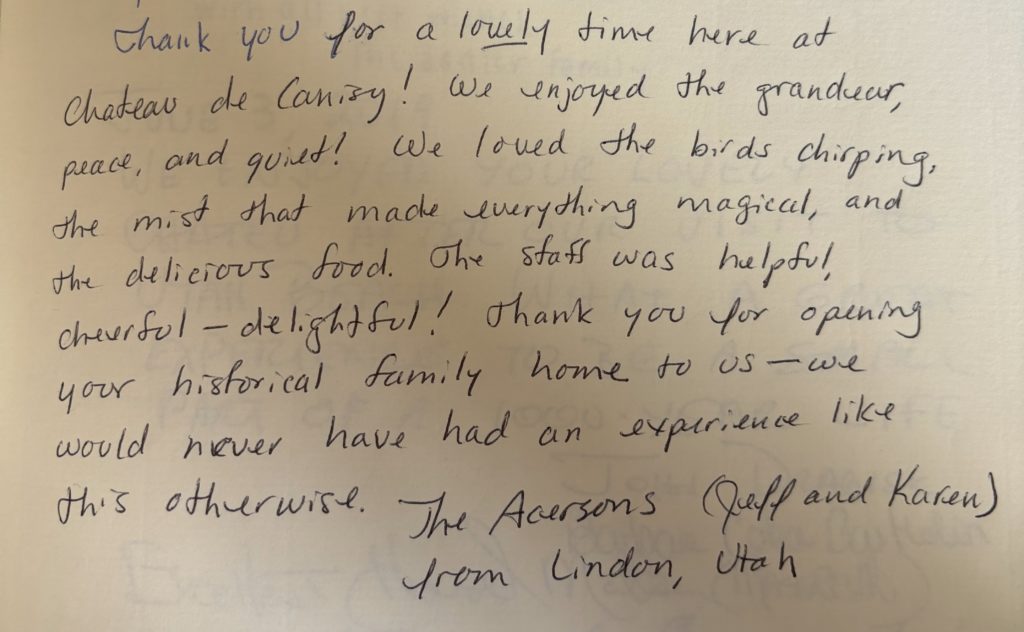 Thank you for a lovely time here at
Chateau de Canisy! We enjoyed the grandeur,
peace, and quiet! We loved the birds chirping,
the mist that made everything magical, and
the delicious food. The staff was helpful,
cheerful – delightful! Thank you for opening
your historical family home to us – we
would never have had an experience like
this otherwise. The Acersons (Jeff and Karen)
from Lindon, Utah